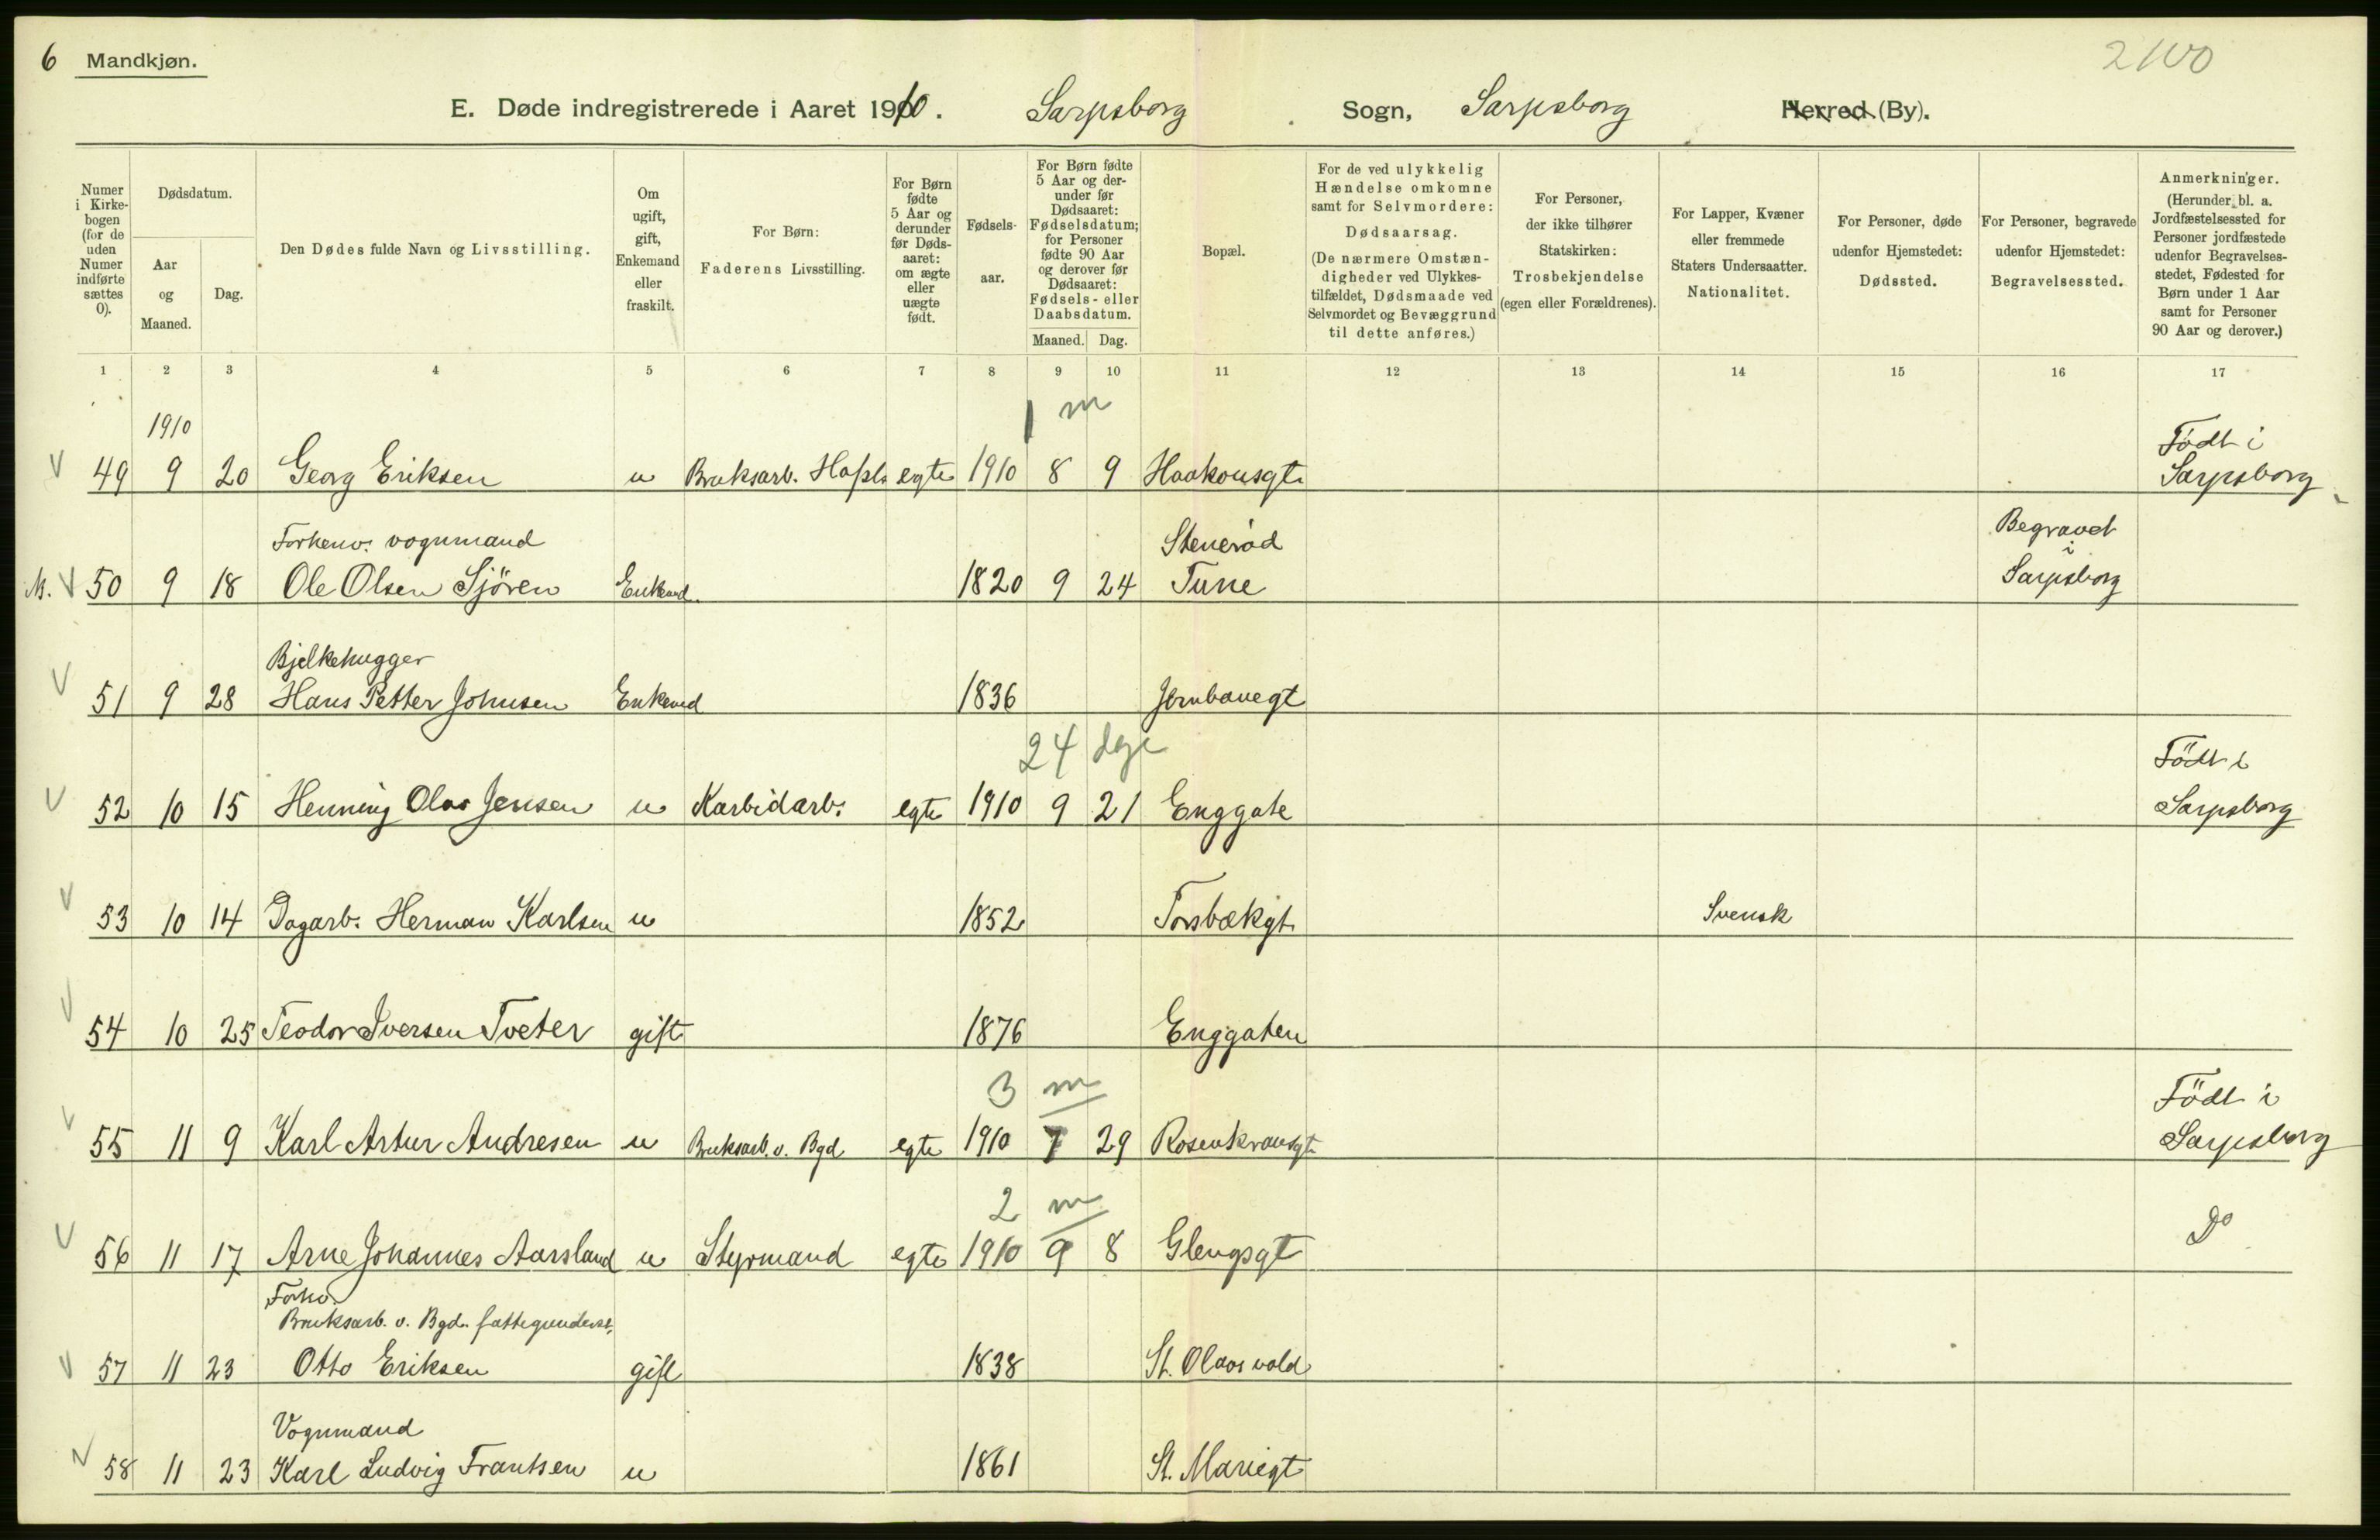 6 Mandkjøn.
2100
E. Døde indregistrerede i Aaret 1910. Sarpsborg Sogn, Sarpsborg Herred (By).
Numer i Kirke- bogen (for de uden Numer indførte sættes 0).
Dødsdatum.
Aar og Maaned.
Dag.
Den Dødes fulde Navn og Livsstilling.
Om ugift, gift, Enkemand eller fraskilt.
For Børn: Faderens Livsstilling.
For Børn fødte 5 Aar og derunder før Døds- aaret: om ægte eller uægte født.
Fødsels- aar.
For Børn fødte 5 Aar og der- under før Dødsaaret: Fødselsdatum; for Personer fødte 90 Aar og derover før Dødsaaret: Fødsels- eller Daabsdatum.
Maaned. Dag.
Bopæl.
For de ved ulykkelig Hændelse omkomne samt for Selvmordere: Dødsaarsag. (De nærmere Omstæn- digheder ved Ulykkes- tilfældet, Dødsmaade ved Selvmordet og Bevæggrund til dette anføres.)
For Personer, der ikke tilhører Statskirken: Trosbekjendelse (egen eller Forældrenes).
For Lapper, Kvæner eller fremmede Staters Undersaatter. Nationalitet.
For Personer, døde udenfor Hjemstedet: Dødssted.
For Personer, begravede udenfor Hjemstedet: Begravelsessted.
Anmerkninger. (Herunder bl. a. Jordfæstelsessted for Personer jordfæstede udenfor Begravelses- stedet, Fødested for Børn under 1 Aar samt for Personer 90 Aar og derover.)
1 2 3 4 5 6 7 8 9 10 11 12 13 14 15 16 17
1910 1 m Födt i
49 9 20 Georg Eriksen u Bruksarb. Hafsl. egte 1910 8 9 Haakonsgt. Sarpsborg
Forhenv. vognmand Stenerød Begravet i
M. 50 9 18 Ole Olsen Sjören Enkemd. 1820 9 24 Tune Sarpsborg
Bjelkehugger
51 9 28 Hans Petter Johnsen Enkemd 1836 Jernbanegt
24 dge Födt i
52 10 15 Henning Olav Jensen u Karbidarb. egte 1910 9 21 Enggate Sarpsborg
53 10 14 Dagarb. Herman Karlsen u 1852 Torsbækgt. Svensk
54 10 25 Teodor Iversen Tveter gift 1876 Enggaten
3 m Födt i
55 11 9 Karl Artur Andresen u Bruksarb. v. Bgd egte 1910 7 29 Rosenkransgt. Sarpsborg
2 m
56 11 17 Arne Johannes Aarsland u Styrmand egte 1910 9 8 Glengsgt Do
Forhv.
Bruksarb. v. Bgd. fattigunderst.
57 11 23 Otto Eriksen gift 1838 St. Olavs vold
Vognmand
58 11 23 Karl Ludvig Frantsen u 1861 St. Mariegt